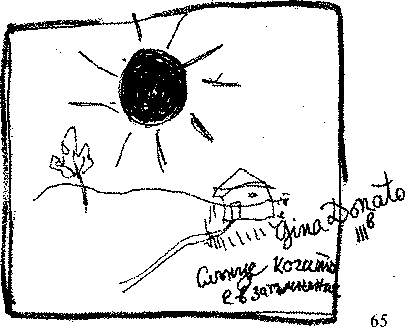 Gina Donato
III в
Слънце когато
е в затъмнение
65